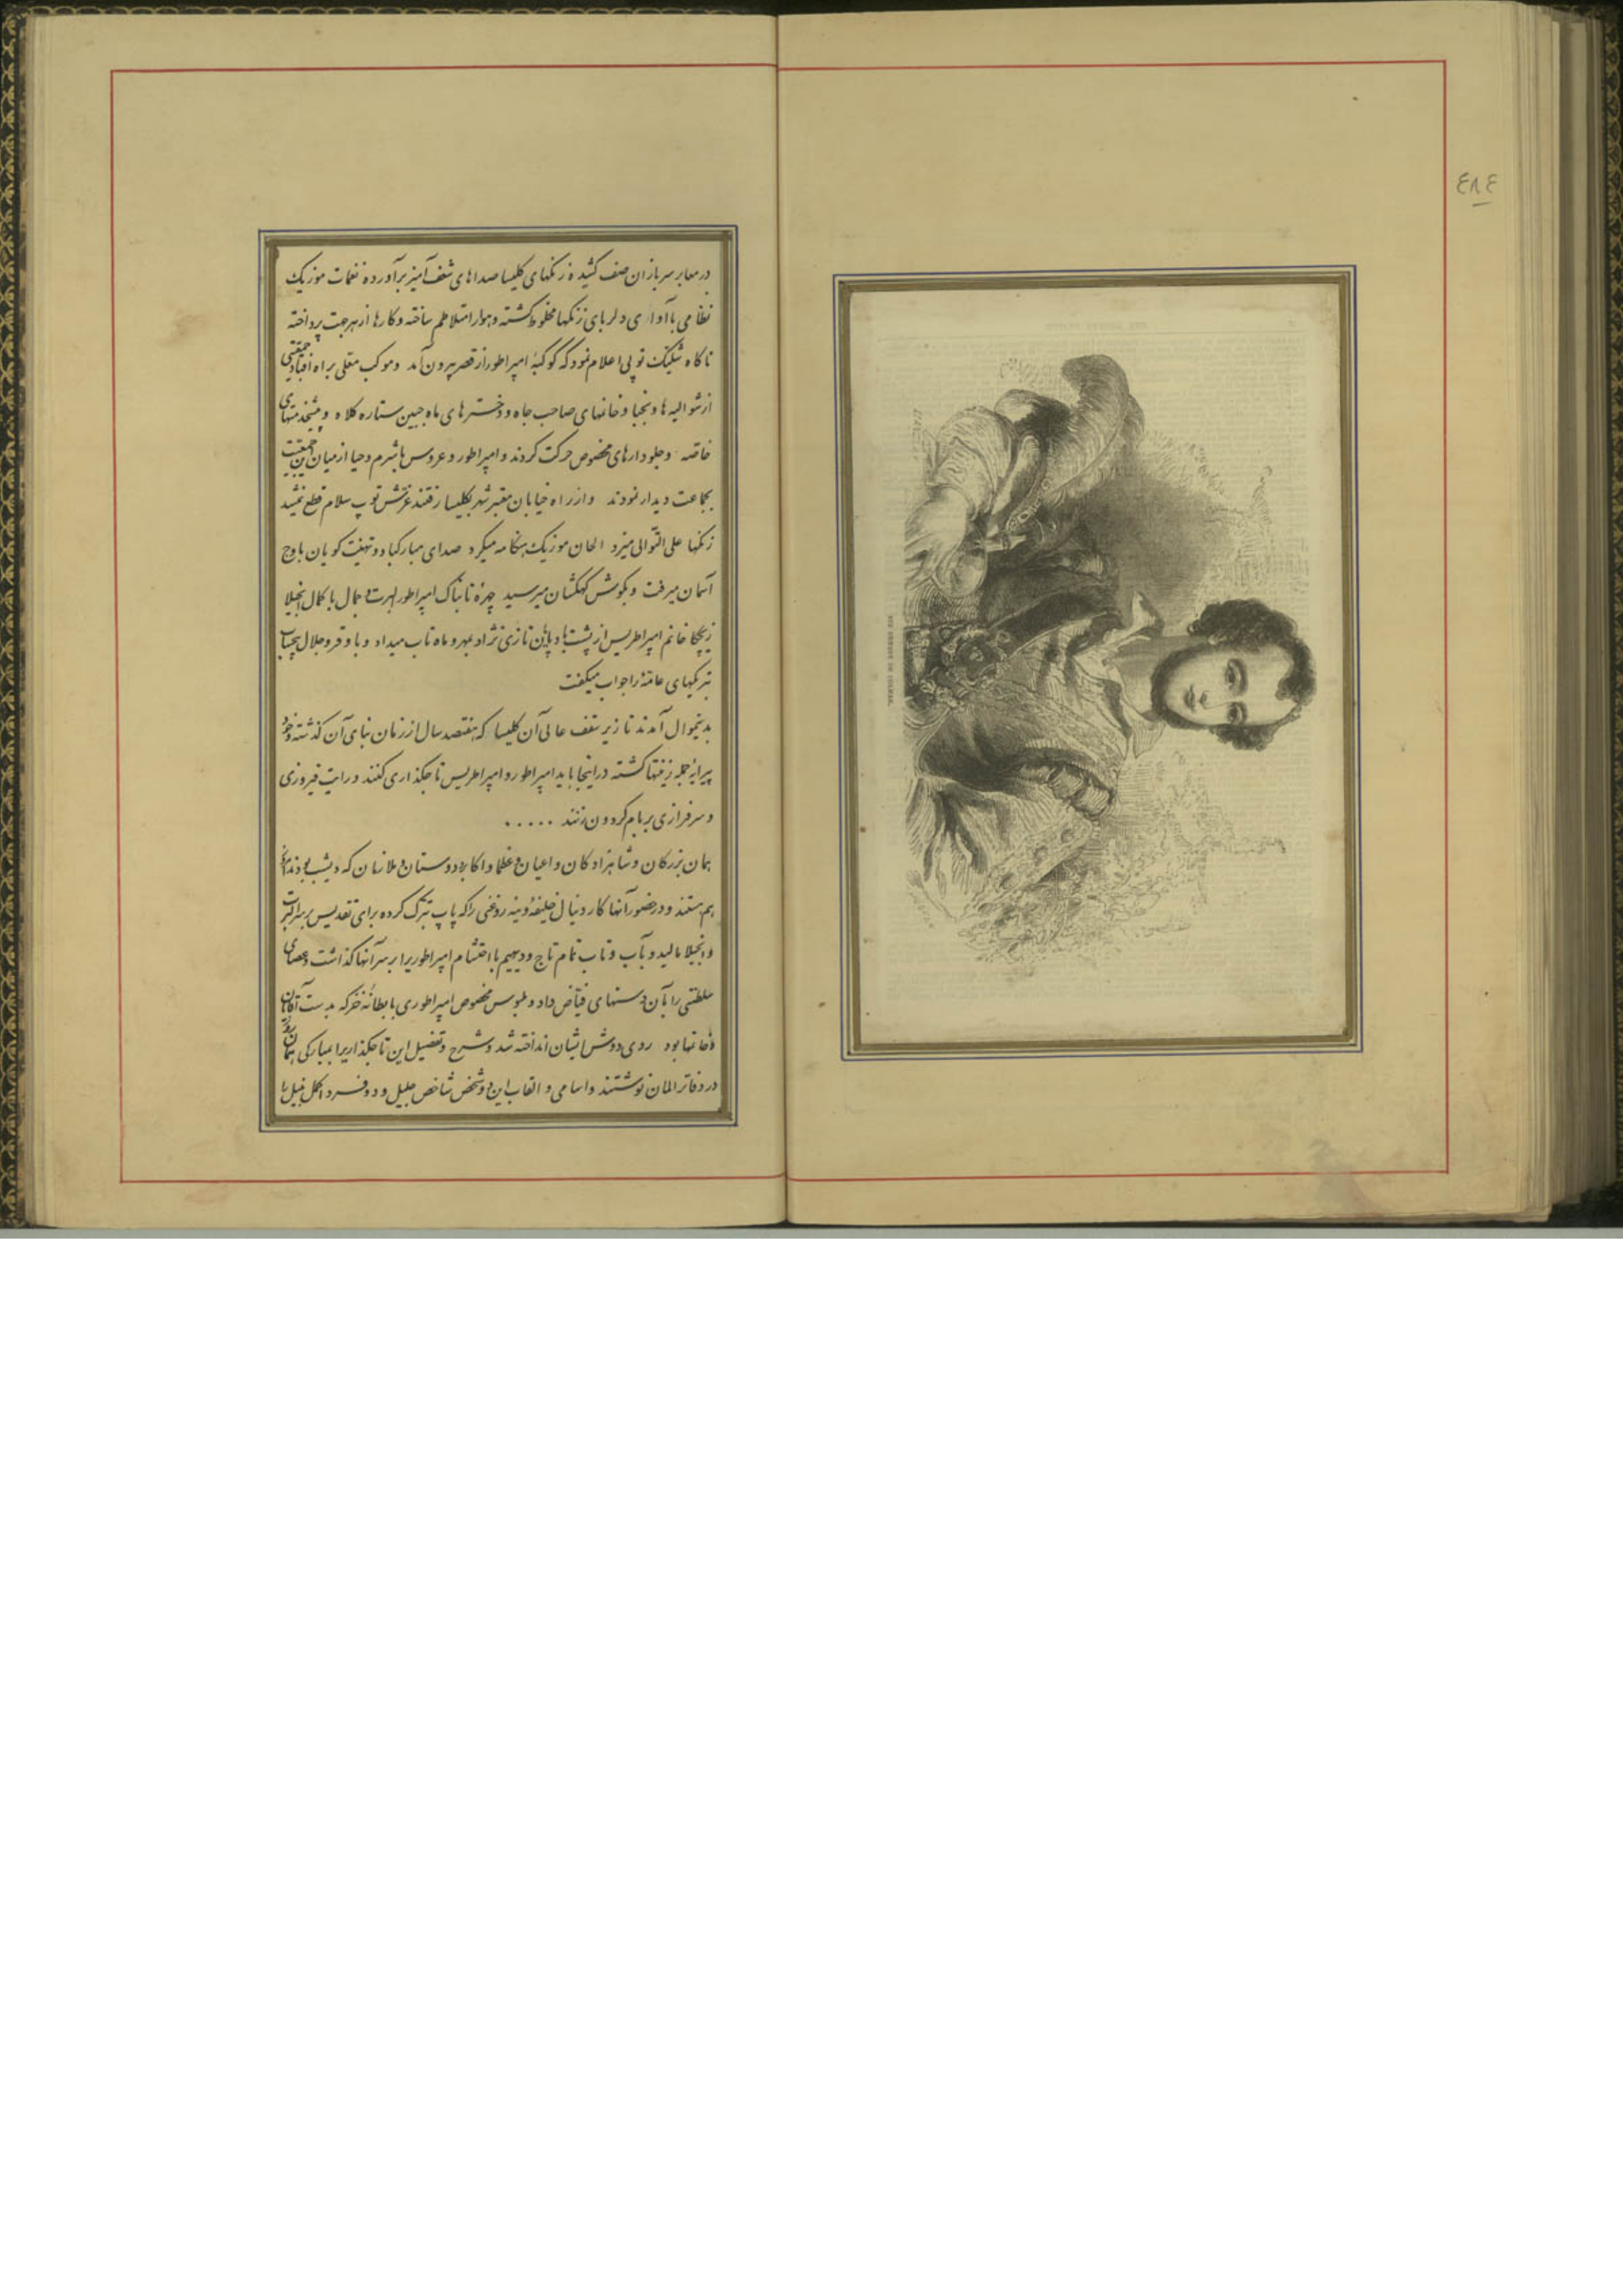 ٤٨٤
در معابر سربازان صف کشیده زنکهای کلیسا صداهای شغف‌آمیز برآورده نغمات موزیک
نظامی با آوازی دلربای زنکها مخلوط کشته و هوا را متلاطم ساخته و کارها از هر جهت پرداخته
ناکاه شلیک توپی اعلام نمود که کوکبهٔ امپراطور از قصر بیرون آمد و موکب معلی براه افتاد جمعیتی
از شوالیه‌ها و نجبا و خانمهای صاحب جاه و دخترهای ماه جبین ستاره کلاه و پیشخدمتهای
خاصه و جلودارهای مخصوص حرکت کردند و امپراطور و عروس با شرم و حیا از میان جمعیت
بجماعت دیدار نمودند و از راه خیابان معتبر شهر بکلیسا رفتند غرش توپ سلام قطع نمیشد
زنکها علی التّوالی میزد الحان موزیک هنکامه میکرد صدای مبارکباد و تهنیت کویان باوج
آسمان میرفت و بکوش کهکشان میرسید چهرهٔ تابناک امپراطور البرت و جمال با کمال انجیلا
زیچکا خانم امپراطریس از پشت بادپایان تازی نژاد بمهر و ماه تاب میداد و با وقر و جلال بیحساب
تبریکهای عامّه را جواب میکفت
بدینموال آمدند تا زیر سقف عالی آن کلیسا که هفتصد سال از زمان بنای آن کذشته و خود
پیرایهٔ جمله زینتها کشته در اینجا باید امپراطور و امپراطریس تاجکذاری کنند و رایت فیروزی
و سرفرازی بر بام کردون زنند .....
همان بزرکان و شاهزادکان و اعیان و عظما و اکابر و دوستان و ملازمان که دیشب بودند
هم هستند و در حضور آنها کاردینال خلیفهٔ وینه روغنی را که پاپ تبرّک کرده برای تقدیس بر سر البرت
و انجیلا مالید و بآب و تاب تمام تاج و دیهیم با احتشام امپراطوریرا بر سر آنها کذاشت و عصای
سلطنتی را بآن دستهای فیّاض داد و ملبوس مخصوص امپراطوری با بطانهٔ خز که بدست آقایان
و خانمها بود روی دوش ایشان انداخته شد و شرح و تفصیل این تاجکذاریرا بمبارکی همان روز
در دفاتر المان نوشتند و اسامی و القاب این دو شخص شاخص جلیل و دو فرد اکمل نبیل با